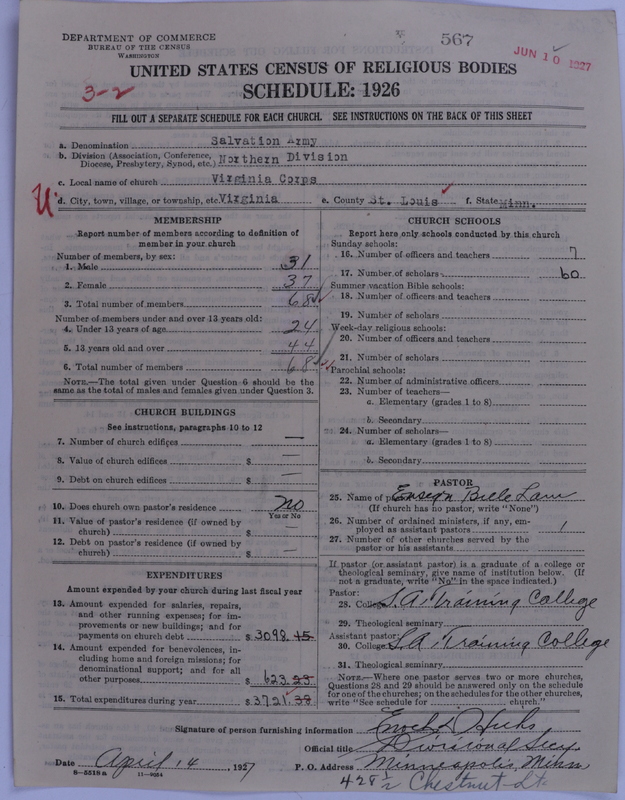 DEPARTMENT OF COMMERCE
BUREAU OF THE CENSUS
WASHINGTON
567
JUN 10 1927
UNITED STATES CENSUS OF RELIGIOUS BODIES
3-2
SCHEDULE: 1926
FILL OUT A SEPARATE SCHEDULE FOR EACH CHURCH. SEE INSTRUCTIONS ON THE BACK OF THIS SHEET
a. Denomination Salvation Army
b. Division (Association, Conference, Diocese, Presbytery, Synod, etc.) Northern Division
c. Local name of church Virginia Corps
d. City, town, village, or township, etc. Virginia e. County St. Louis f. State Minn.
MEMBERSHIP
Report number of members according to definition of
member in your church
Number of members, by sex:
1. Male 31
2. Female 37
3. Total number of members 68
Number of members under and over 13 years old:
4. Under 13 years of age 24
5. 13 years old and over 44
6. Total number of members 68
NOTE.—The total given under Question 6 should be
same as the total of males and females given under Question 3.
CHURCH BUILDINGS
See instructions, paragraphs 10 to 12
7. Number of church edifices —
8. Value of church edifices $ —
9. Debt on church edifices $ —
10. Does church own pastor's residence no
Yes or No
11. Value of pastor's residence (if owned by
church) $ —
12. Debt on pastor's residence (if owned by
church) $ —
EXPENDITURES
Amount expended by your church during last fiscal year
13. Amount expended for salaries, repairs,
and other running expenses; for im-
provements or new buildings; and for
payments on church debt $ 3098.45
14. Amount expended for benevolences, in-
cluding home and foreign missions; for
denominational support; and for all
other purposes $ 623.
15. Total expenditures during year $ 3721.
CHURCH SCHOOLS
Report here only schools conducted by this church
Sunday schools:
16. Number of officers and teachers 7
17. Number of scholars 60
Summer vacation Bible schools:
18. Number of officers and teachers
19. Number of scholars
Week-day religious schools:
20. Number of officers and teachers
21. Number of scholars
Parochial schools:
22. Number of administrative officers
23. Number of teachers—
a. Elementary (grades 1 to 8)
b. Secondary
24. Number of scholars—
a. Elementary (grades 1 to 8)
b. Secondary
PASTOR
25. Name of Ensign
(If church has no pastor, write "None")
26. Number of ordained ministers, if any, em-
ployed as assistant pastors 1
27. Number of other churches served by the
pastor or his assistants
If pastor (or assistant pastor) is a graduate of a college or
theological seminary, give name of institution below. (If
not a graduate, write "No" in the space indicated.)
Pastor:
28. College S.A. Training College
29. Theological seminary
Assistant pastor:
30. College S.A. Training College
31. Theological seminary
NOTE.—Where one pastor serves two or more churches,
Questions 28 and 29 should be answered only on the schedule
for one of the churches; on the schedules for the other churches,
write "See schedule for church."
Signature of person furnishing information Enoch Hicks
Official title Divisional Secy
Date April 14, 1927 P. O. Address Minneapolis, Minn
8-5518 a 11-9054
428½ Chestnut St.